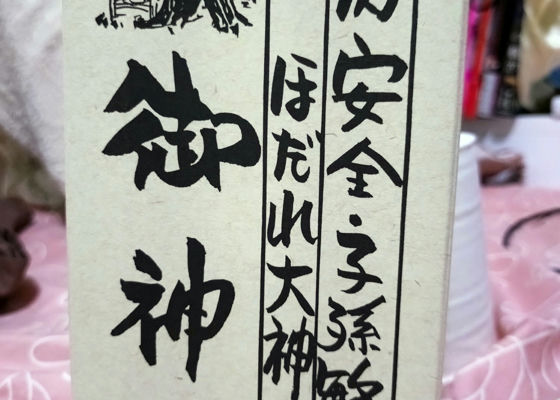 安全子孫
ほだれ大神
御神